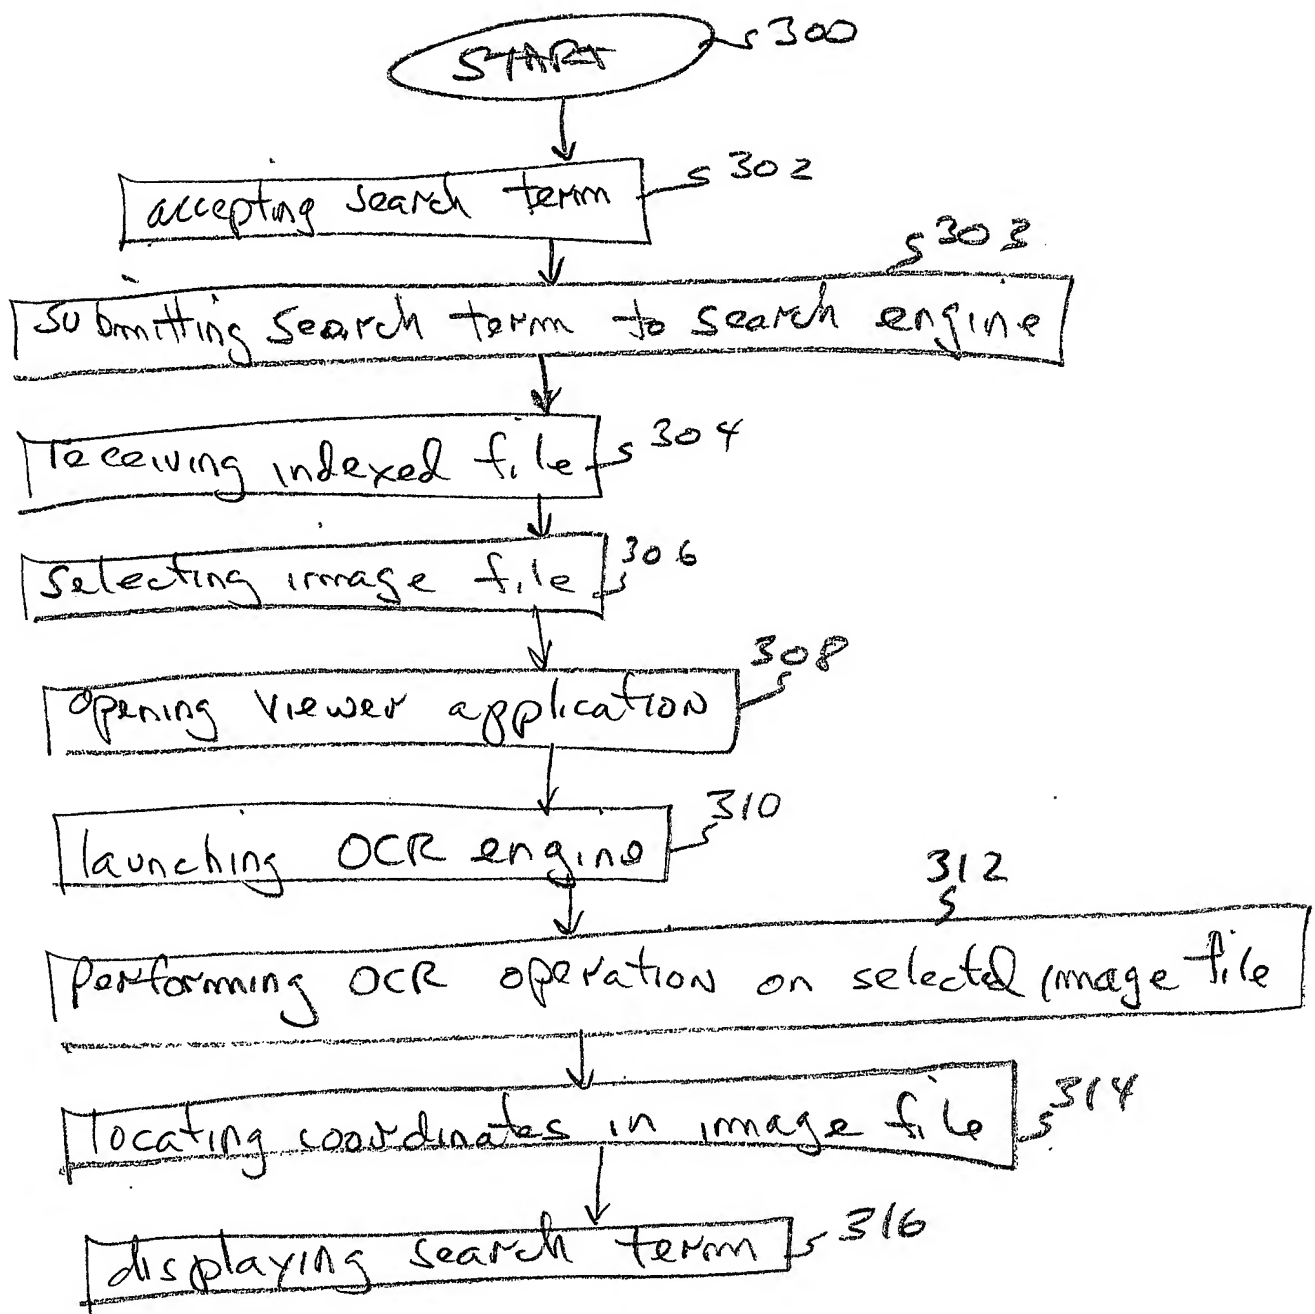 START 300
accepting search term 302
303
submitting search term to search engine
receiving indexed file 304
selecting image file 306
308
opening viewer application
310
launching OCR engine
312
performing OCR operation on selected image file
locating coordinates in image file 314
displaying search term 316